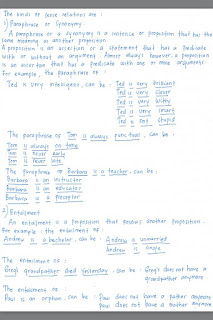 The kinds of sense relations are :
1) Paraphrase or Synonymy.
A paraphrase or a synonymy is a sentence or proposition that has the
same meaning as another proposition.
A proposition is an assertion or a statement that has a predicate
with or without an argument. Almost always however, a proposition
is an assertion that has a predicate with one or more arguments.
For example, the paraphrase of :
Ted is very intelligent, can be :
Ted is very brilliant
Ted is very clever
Ted is very witty
Ted is very smart
Ted is not stupid
The paraphrase of Tom is always punctual, can be :
Tom is always on time
Tom is never early
Tom is never late
The paraphrase of Barbara is a teacher, can be :
Barbara is an instructor
Barbara is an educator
Barbara is a preceptor
2) Entailment
An entailment is a proposition that follows another proposition.
For example : the entailment of :
Andrew is a bachelor, can be : Andrew is unmarried
Andrew is single
The entailment of :
Greg's grandfather died yesterday, can be : Greg does not have a
grandfather anymore
The entailment of :
Paul is an orphan, can be : Paul does not have a father anymore
Paul does not have a mother anymore